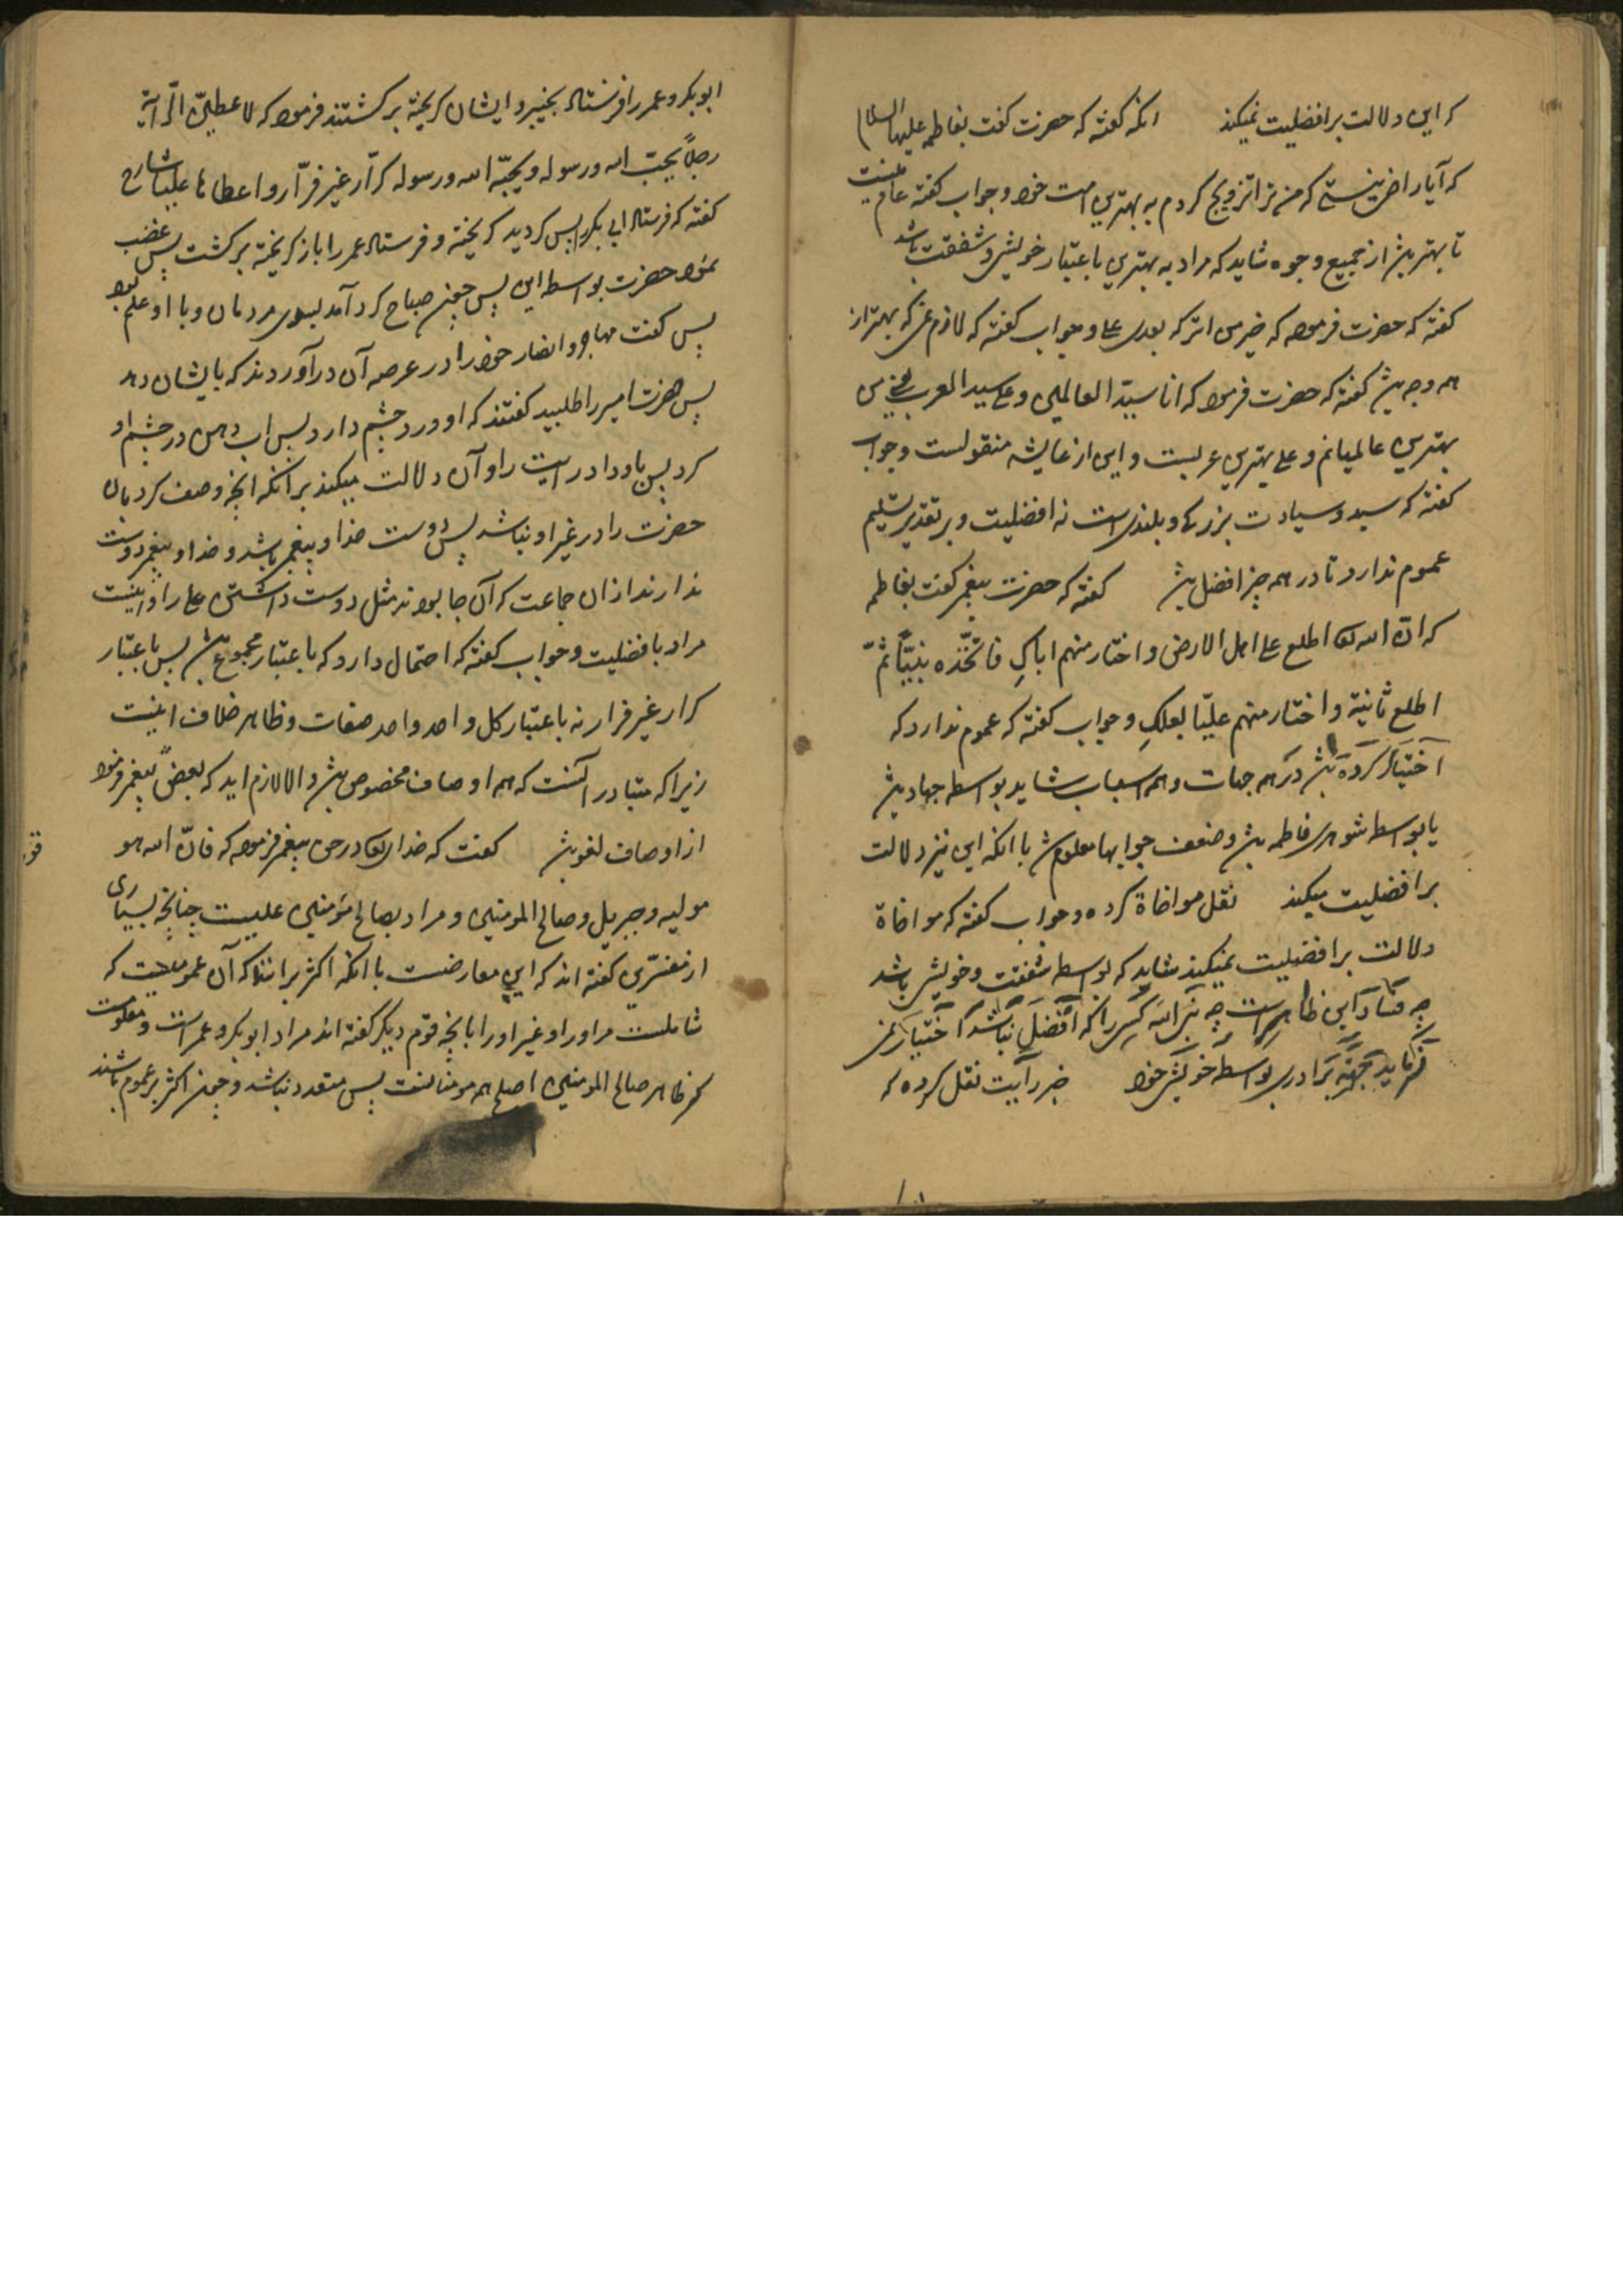 که این دلالت بر افضلیت نمیکند انکه کفته که حضرت کفت بفاطمه علیها السلام
که آیا راضی نیستی که من ترا تزویج کردم به بهترین امت خود و جواب کفته عام نیست
تا بهترین از جمیع وجوه شاید که مراد به بهترین باعتبار خویشی و شفقت باشد
کفته که حضرت فرموده که خیر من اترکه بعدی علی و جواب کفته که لازم نمی که بهتر از
همه وجه بش کفته که حضرت فرمود که انا سید العالمین و علی سید العرب یعنی من
بهترین عالمیانم و علی بهترین عربست و این از عایشه منقولست و جواب
کفته که سید و سیادت بزرکی و بلندیست نه افضلیت و بر تقدیر تسلیم
عموم ندارد تا در همه چیز افضل بش کفته که حضرت پیغمبر کفت بفاطمه
که انّ الله تعا اطلع علی اهل الارض و اختار منهم اباکِ فاتّخذه نبیّاً ثمّ
اطلع ثانیة و اختار منهم علیّا بعلکِ و جواب کفته که عموم ندارد که
اختیار کرده بش در همه جهات و همه اسباب شاید بواسطه جهاد بش
یا بواسطه شوهری فاطمه بش و ضعف جوابها معلوم ش با انکه این نیز دلالت
بر افضلیت میکند نقل مواخاة کرده و جواب کفته که مواخاة
دلالت بر افضیلیت نمیکند شاید که بواسطه شفقت و خویشی باشد
چه فساد این ظاهر است چه کسی را که افضل نباشد اختیار نمی
فرماید بجهة برادری بواسطه خویشی خود خبر رایت نقل کرده که
ابو بکر و عمر را فرستاد بخیبر و ایشان کریخته برکشتند فرمود که لاعطینّ الرّایة
رجلاً یحبّ الله و رسوله و یحبّه الله و رسوله کرّار غیر فرّار و اعطاها علیا شارح
کفته که فرستاد ابی بکر را پس کردید کریخته و فرستاد عمر را باز کریخته برکشت پس غضب
نمود حضرت بواسطه این پس چون صباح کرد آمد بسوی مردمان و با او علم بود
پس کفت مهاجر و انصار خود را در عرصه آن درآوردند که بایشان دهد
پس حضرت امیر را طلبید کفتند که او درد چشم دارد پس اب دهن در چشم او
کرد پس باو داد رایت را و آن دلالت میکند بر انکه انچه وصف کرد بان
حضرت را در غیر او نباشد پس دوست خدا و پیغمبر باشد و خدا و پیغمبر دوست
ندارند از ان جماعت که آن جا بودند مثل دوست داشتن علی را و اینست
مراد بافضلیت و جواب کفته که احتمال دارد که باعتبار مجموع بش پس باعتبار
کرار غیر فرار نه باعتبار کل واحد واحد صفات و ظاهر خلاف اینست
زیرا که متبادر انست که همه اوصاف مخصوص بش و الا لازم اید که بعضی پیغمبر فرمود
از اوصاف لغو بش کفت که خدای تعا در حق پیغمبر فرموده که فانّ الله هو
مولیه و جبریل و صالح المومنین و مراد بصالح مؤمنین علیست چنانچه بسیاری
از مفسّرین کفته اند که این معارضست با انکه اکثر برانند که آن عمومیست که
شاملست مر او را و غیر او را بانچه قوم دیکر کفته اند مراد ابو بکر و عمر است و معلومست
که ظاهر صالح المومنین اصلح همه مومنانست پس متعدد نباشد و چون اکثر بر عموم باشند